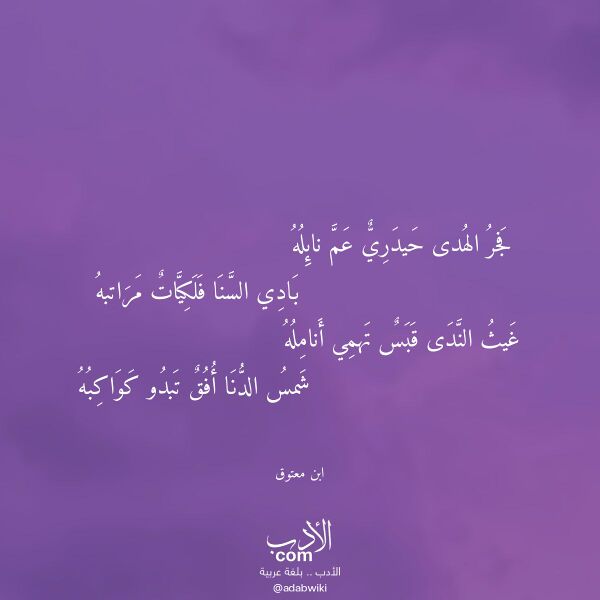 فَجرُ الهُدى حَيدَرِيٌّ عَمَّ نائِلُهُ
بَادِي السَّنَا فَلَكِيَّاتٌ مَرَاتبهُ
غَيثُ النَّدَى قَبَسٌ تَهمِي أَنامِلُهُ
شَمسُ الدُّنَا أُفُقٌ تَبدُو كَوَاكِبُهُ
ابن معتوق
الأدب
com
الأدب .. بلغة عربية
@adabwiki